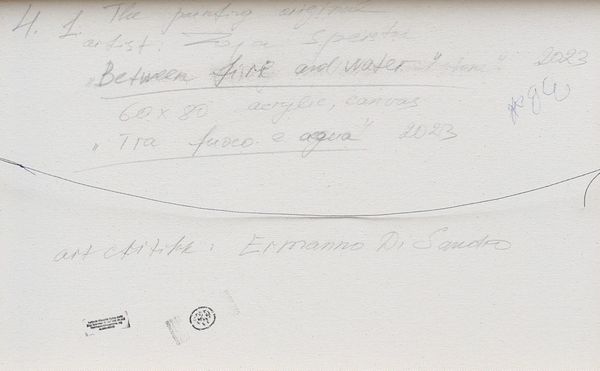 4. 1. The painting original
artist: Zoja Sperstad
„Between fire and water" 2023
60 x 80 acrylic, canvas
„Tra fuoco e aqua" 2023
art critik: Ermanno Di Sandro